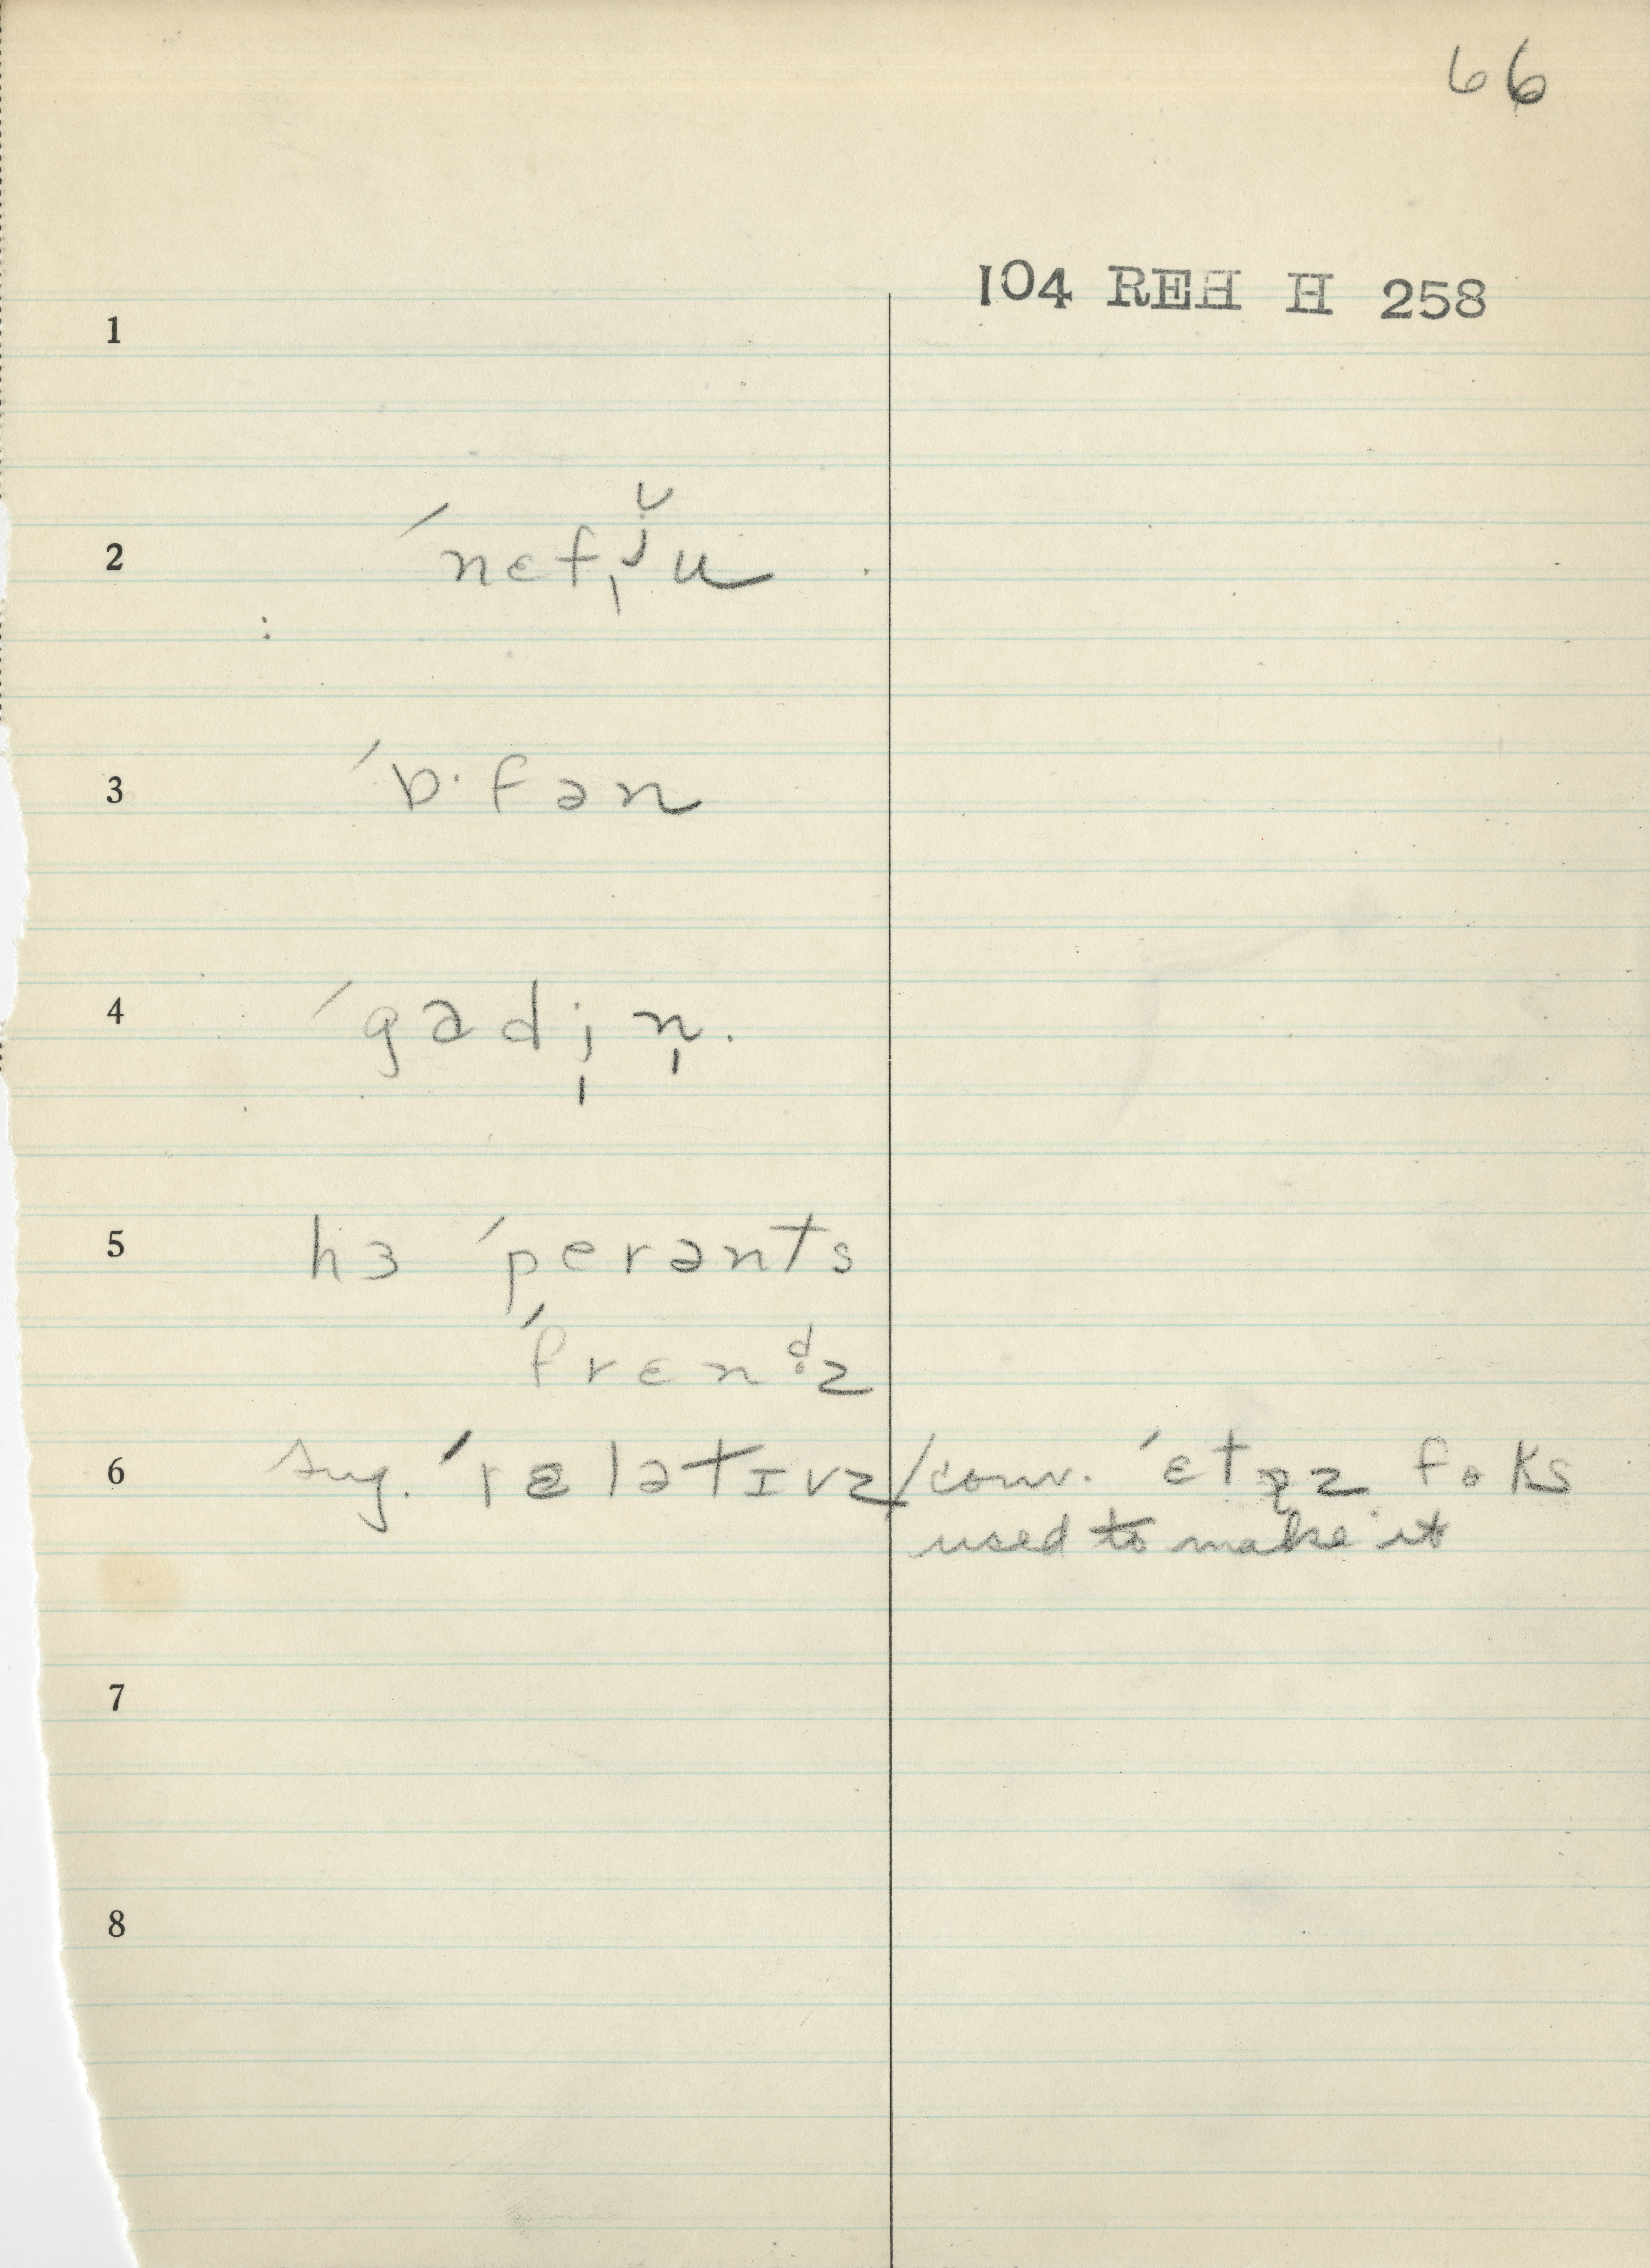 66
104 REH H 258
1
2 ˈnɛfˌj̆u
3 ˈɒ·fən
4 ˈgɑdi̩n̩.
5 hɜ ˈperənts
ˈfrɛnd̥z
6 sug. ˈrɛlətɪvz/conv. ˈɛt foks
used to make it
7
8